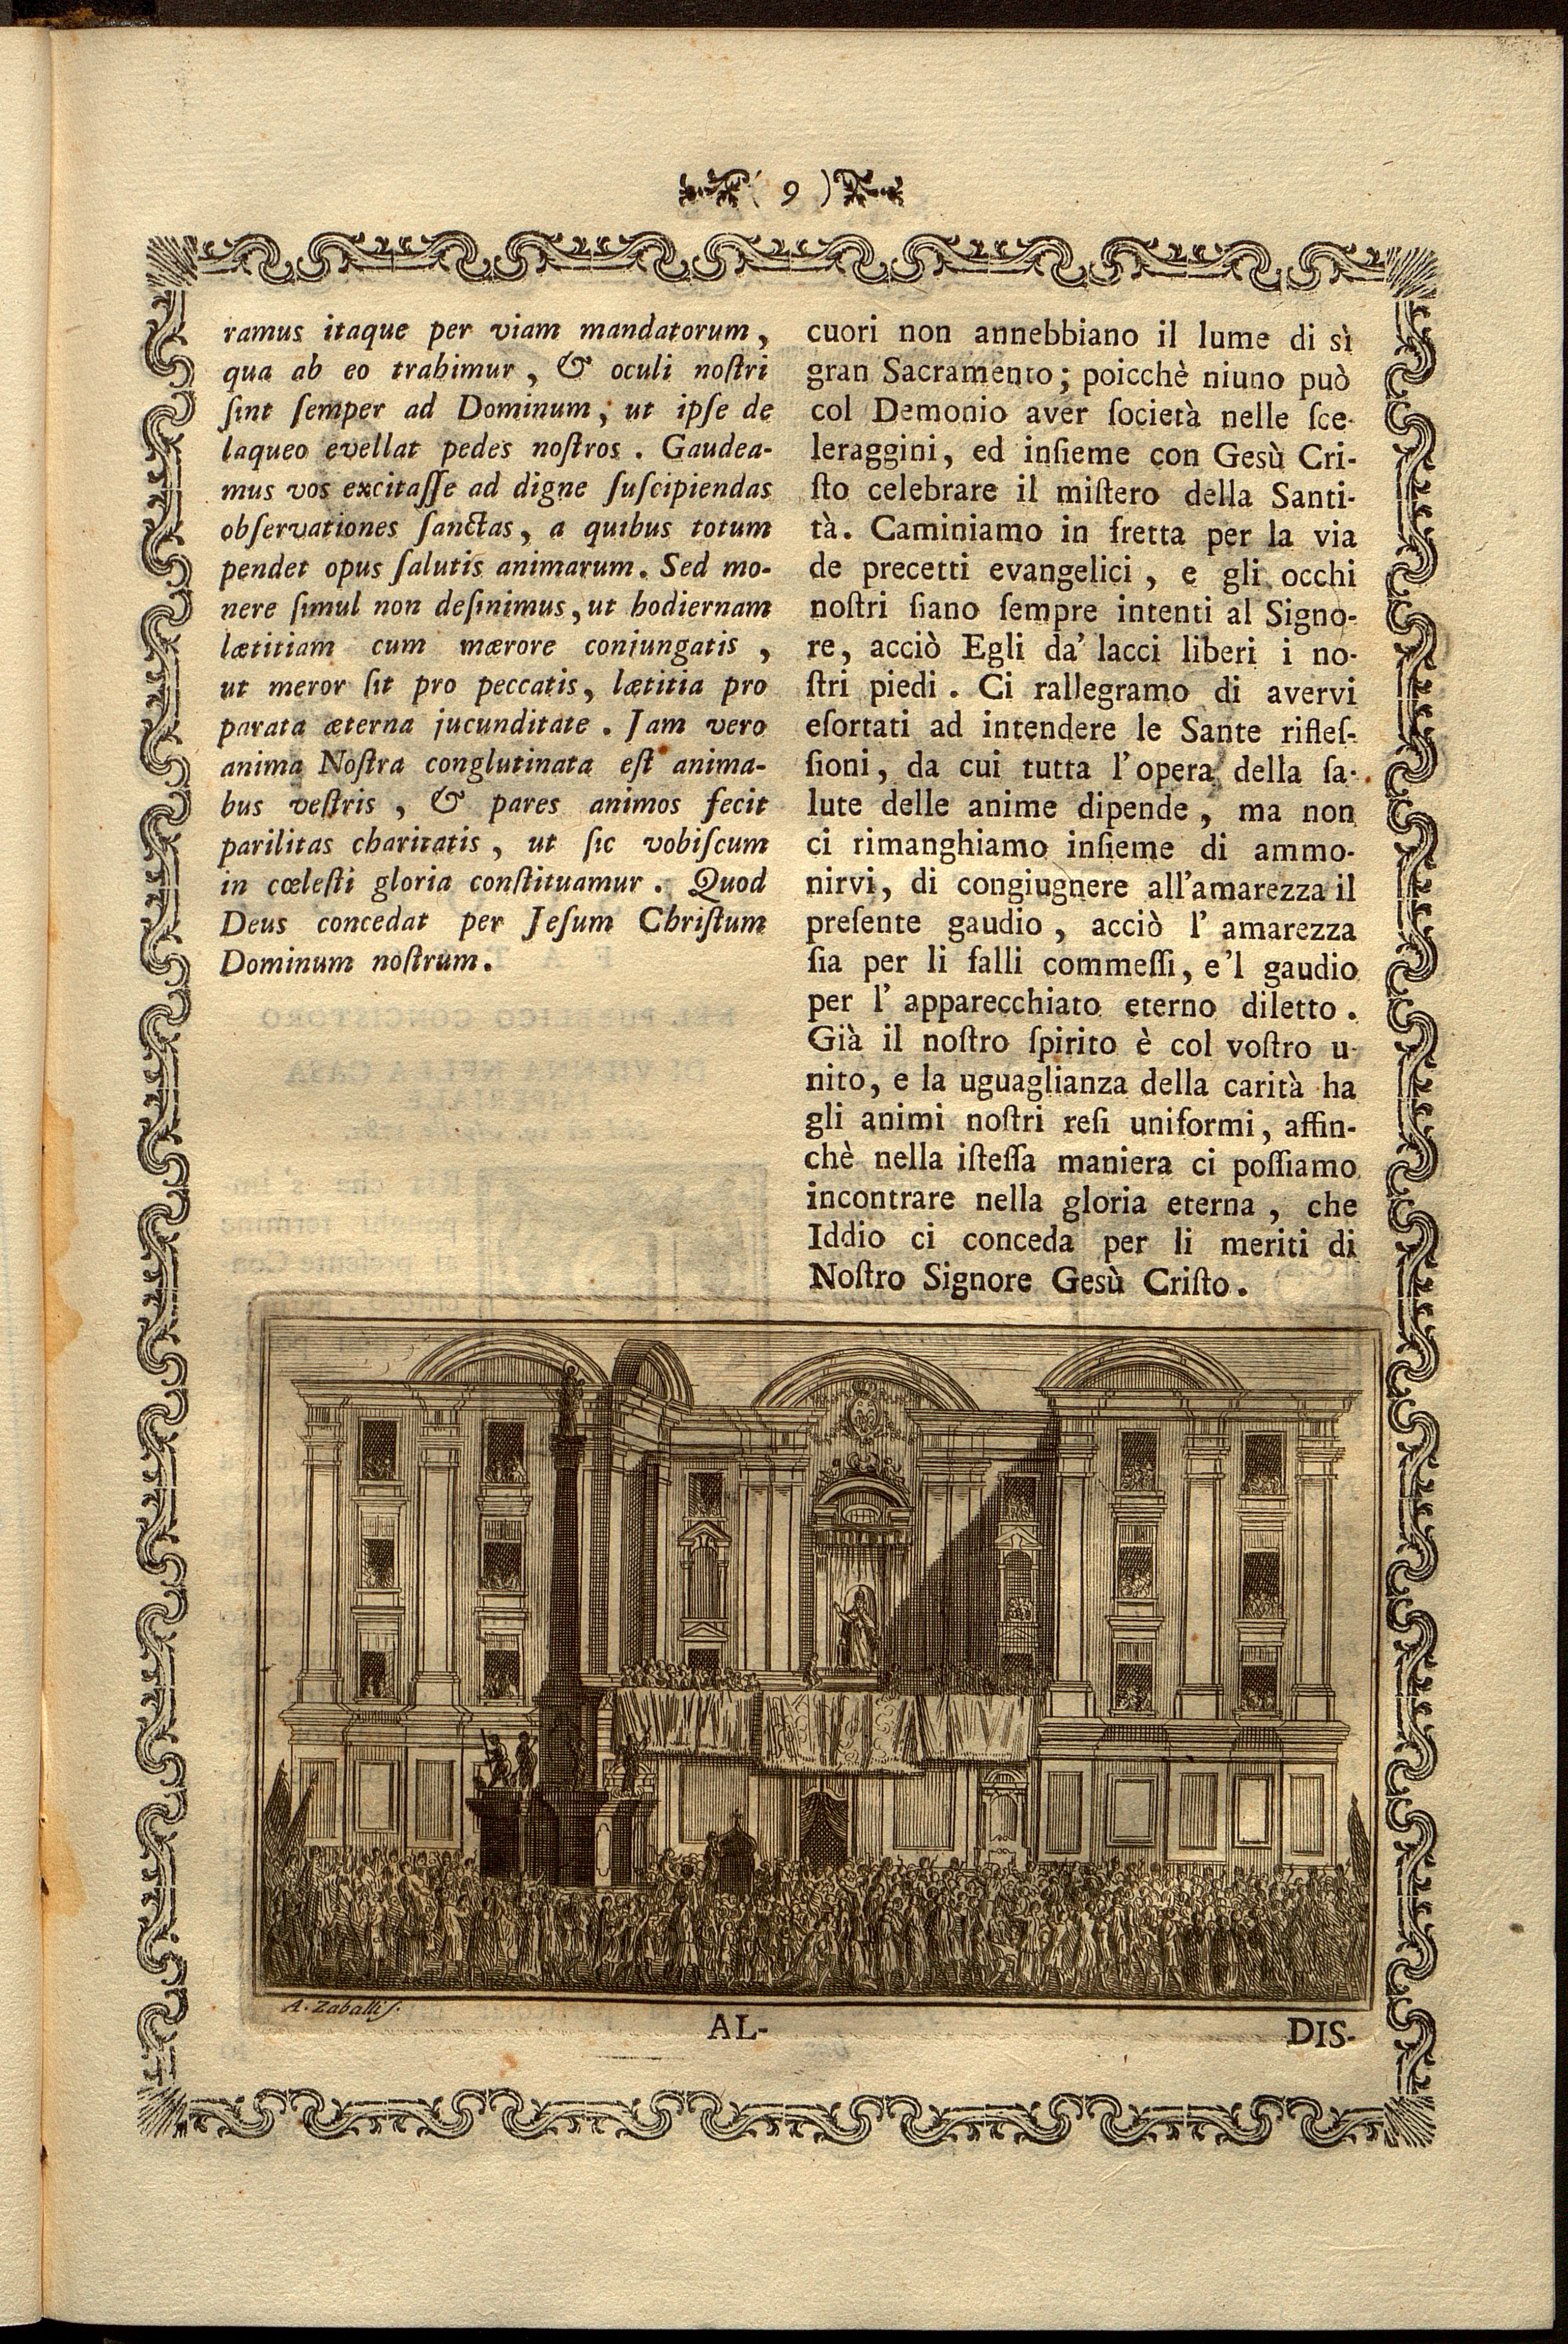 ( 9 )
ramus itaque per viam mandatorum,
qua ab eo trahimur, & oculi noſtri
ſint ſemper ad Dominum, ut ipſe de
laqueo evellat pedes noſtros. Gaudea-
mus vos excitaſſe ad digne ſuſcipiendas
obſervationes ſanctas, a quibus totum
pendet opus ſalutis animarum. Sed mo-
nere ſimul non deſinimus, ut hodiernam
lætitiam cum mærore conjungatis,
ut meror ſit pro peccatis, lætitia pro
parata æterna jucunditate. Jam vero
anima Noſtra conglutinata eſt anima-
bus veſtris, & pares animos fecit
parilitas charitatis, ut ſic vobiſcum
in cœleſti gloria conſtituamur. Quod
Deus concedat per Jeſum Chriſtum
Dominum noſtrum.
cuori non annebbiano il lume di sì
gran Sacramento; poicchè niuno può
col Demonio aver ſocietà nelle ſce-
leraggini, ed inſieme con Gesù Cri-
ſto celebrare il miſtero della Santi-
tà. Caminiamo in fretta per la via
de precetti evangelici, e gli occhi
noſtri ſiano ſempre intenti al Signo-
re, acciò Egli da' lacci liberi i no-
ſtri piedi. Ci rallegramo di avervi
eſortati ad intendere le Sante rifleſ-
ſioni, da cui tutta l'opera della ſa-
lute delle anime dipende, ma non
ci rimanghiamo inſieme di ammo-
nirvi, di congiugnere all'amarezza il
preſente gaudio, acciò l' amarezza
ſia per li falli commeſſi, e'l gaudio
per l' apparecchiato eterno diletto.
Già il noſtro ſpirito è col voſtro u-
nito, e la uguaglianza della carità ha
gli animi noſtri reſi uniformi, affin-
chè nella iſteſſa maniera ci poſſiamo
incontrare nella gloria eterna, che
Iddio ci conceda per li meriti di
Noſtro Signore Gesù Criſto.
A. Zaballi ſ.
AL-
DIS-